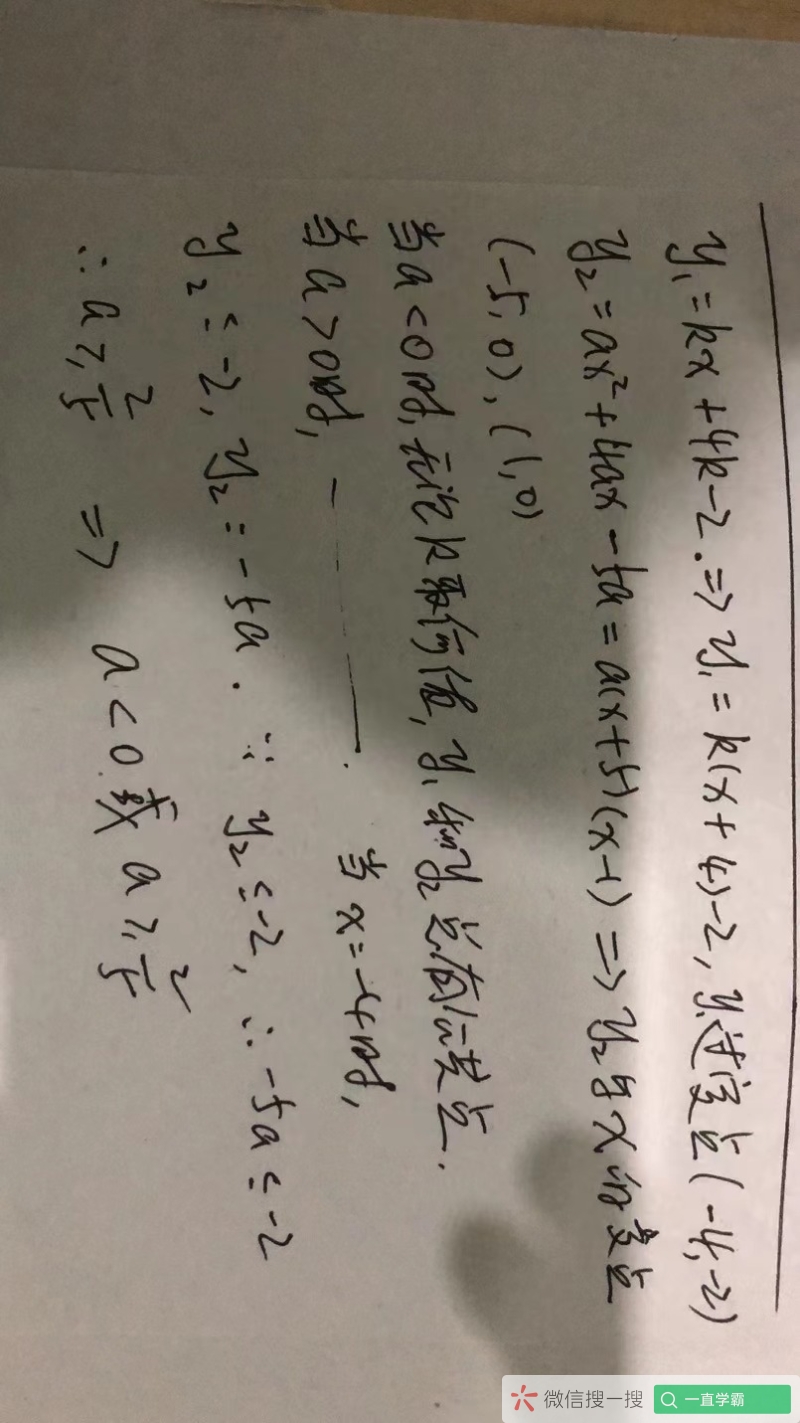 y₁=kx+4k-2.=> y₁=k(x+4)-2, y₁过定点(-4,-2)
y₂=ax²+4ax-5a=a(x+5)(x-1) => y₂与x的交点
(-5,0),(1,0)
当a<0时,无论k取何值,y₁和y₂总有公共点.
当a>0时, ———. 当x=-4时,
y₂=-2, y₂=-5a. ∵ y₂≤-2, ∴ -5a≤-2
∴ a≥2/5 => a<0或a≥2/5
微信搜一搜
一直学霸